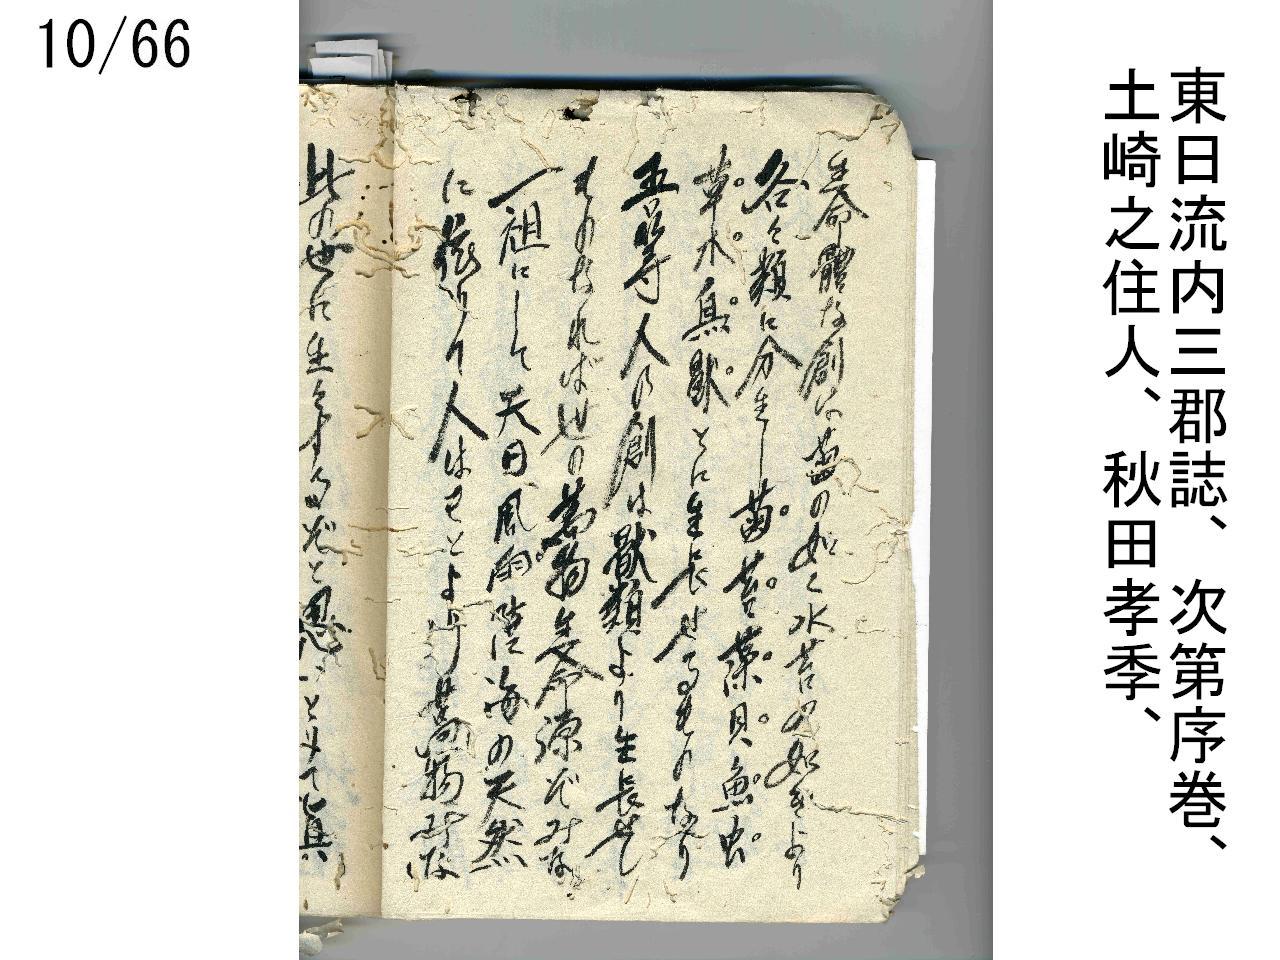 10/66
東日流内三郡誌、次第序巻、
土崎之住人、秋田孝季、
生命體な創は菌の如く水苔の如きより
各々類に分生し菌。苔。藻。貝。魚。虫。
草。木。鳥。獣。とに生長せるものなり
吾等人の創は獣類より生長せし
ものなれば世の萬物生命源ぞみな
一祖にして天日風雨陸海の天然
に依りて人はもとより萬物みな
此の世に生々するぞと思いとりて真